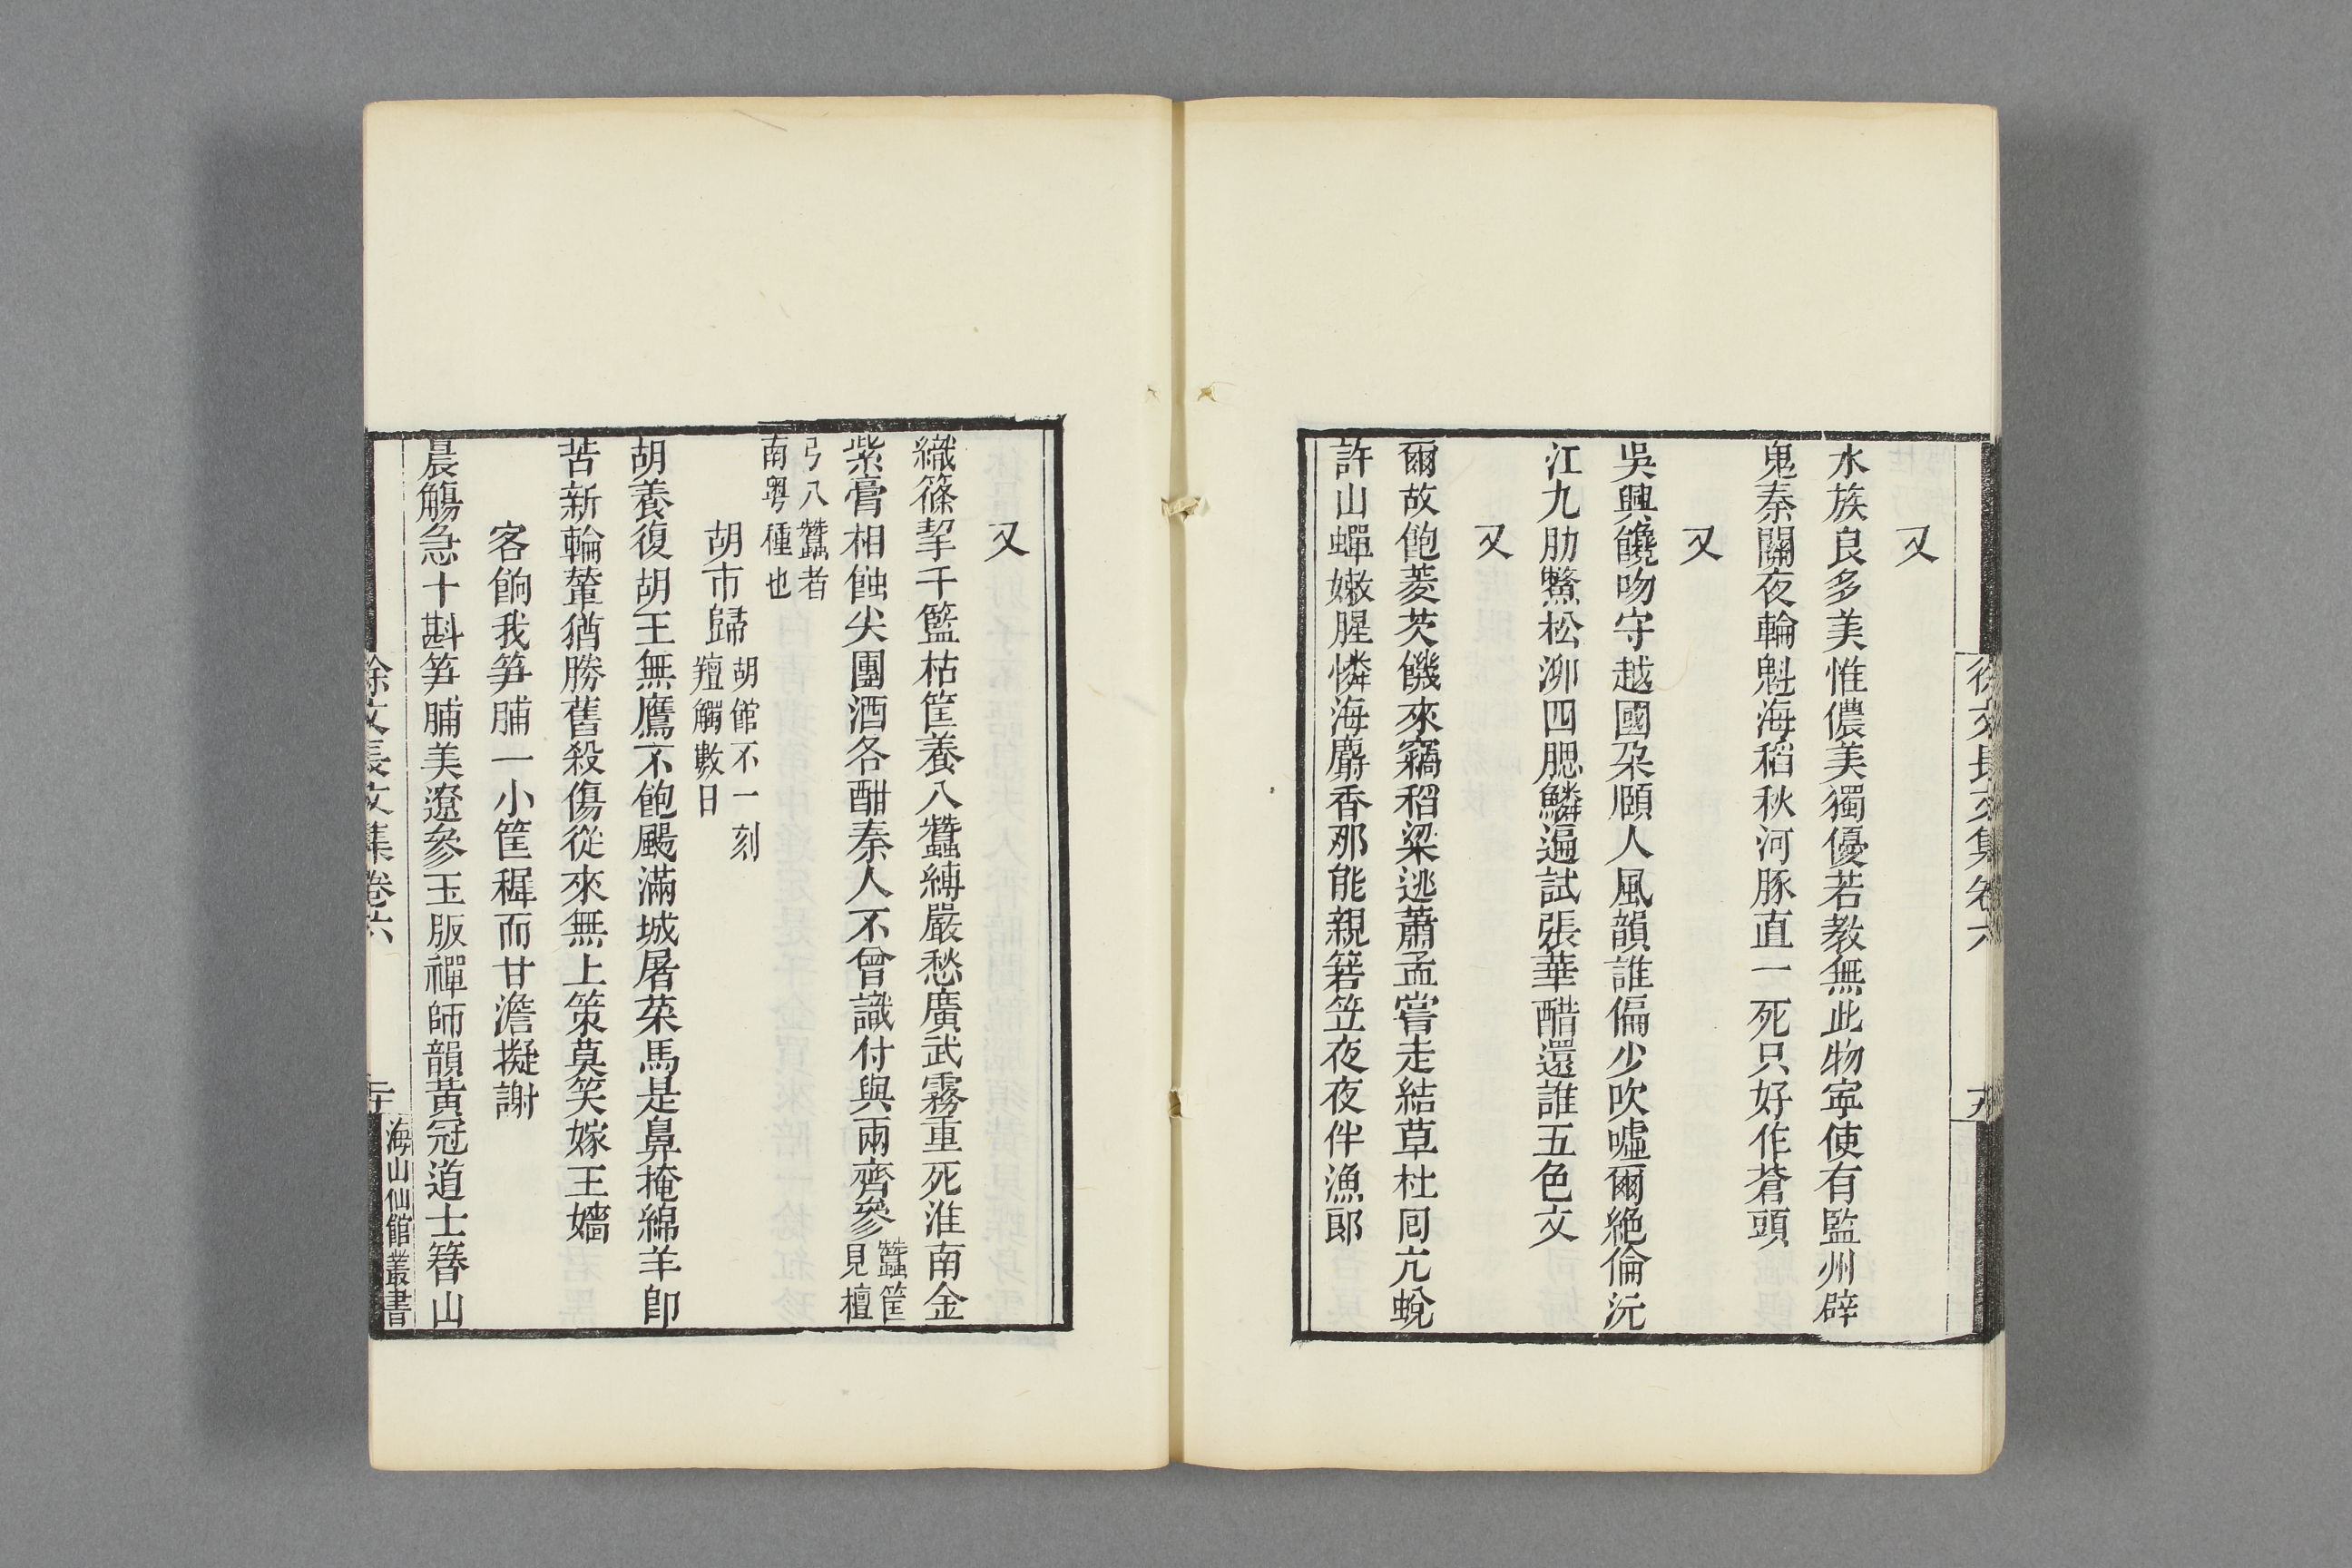 又
水族良多美惟儂美獨優若教無此物寧使有監州辟
鬼秦關夜輪魁海稻秋河豚直一死只好作蒼頭
又
吳興饒吻守越國朶頤人風韻誰偏少吹噓爾絶倫沅
江九肋鱉松泖四腮鱗遍試張華醋還誰五色文
又
爾故飽菱芡饑來竊稻粱逃蕭孟嘗走結草杜囘亢蛻
許山蟬嫩腥憐海麝香那能親箬笠夜夜伴漁郞
徐文長文集卷六
九
又
織篠挈千籃枯筐養八蠶縛嚴愁廣武霧重死淮南金
紫膏相蝕尖團酒各酣秦人不曾識付與兩齊參蠶筐
見檀
弓八蠶者
南粤種也
胡市歸胡館不一刻
羶觸數日
胡養復胡王無鷹不飽颺滿城屠菜馬是鼻掩綿羊卽
苦新輪輦猶勝舊殺傷從來無上策莫笑嫁王嬙
客餉我笋脯一小筐穉而甘澹擬謝
晨觴急十斟笋脯美遼參玉版禪師韻黃冠道士簪山
徐文長文集卷六
二十
海山仙館叢書